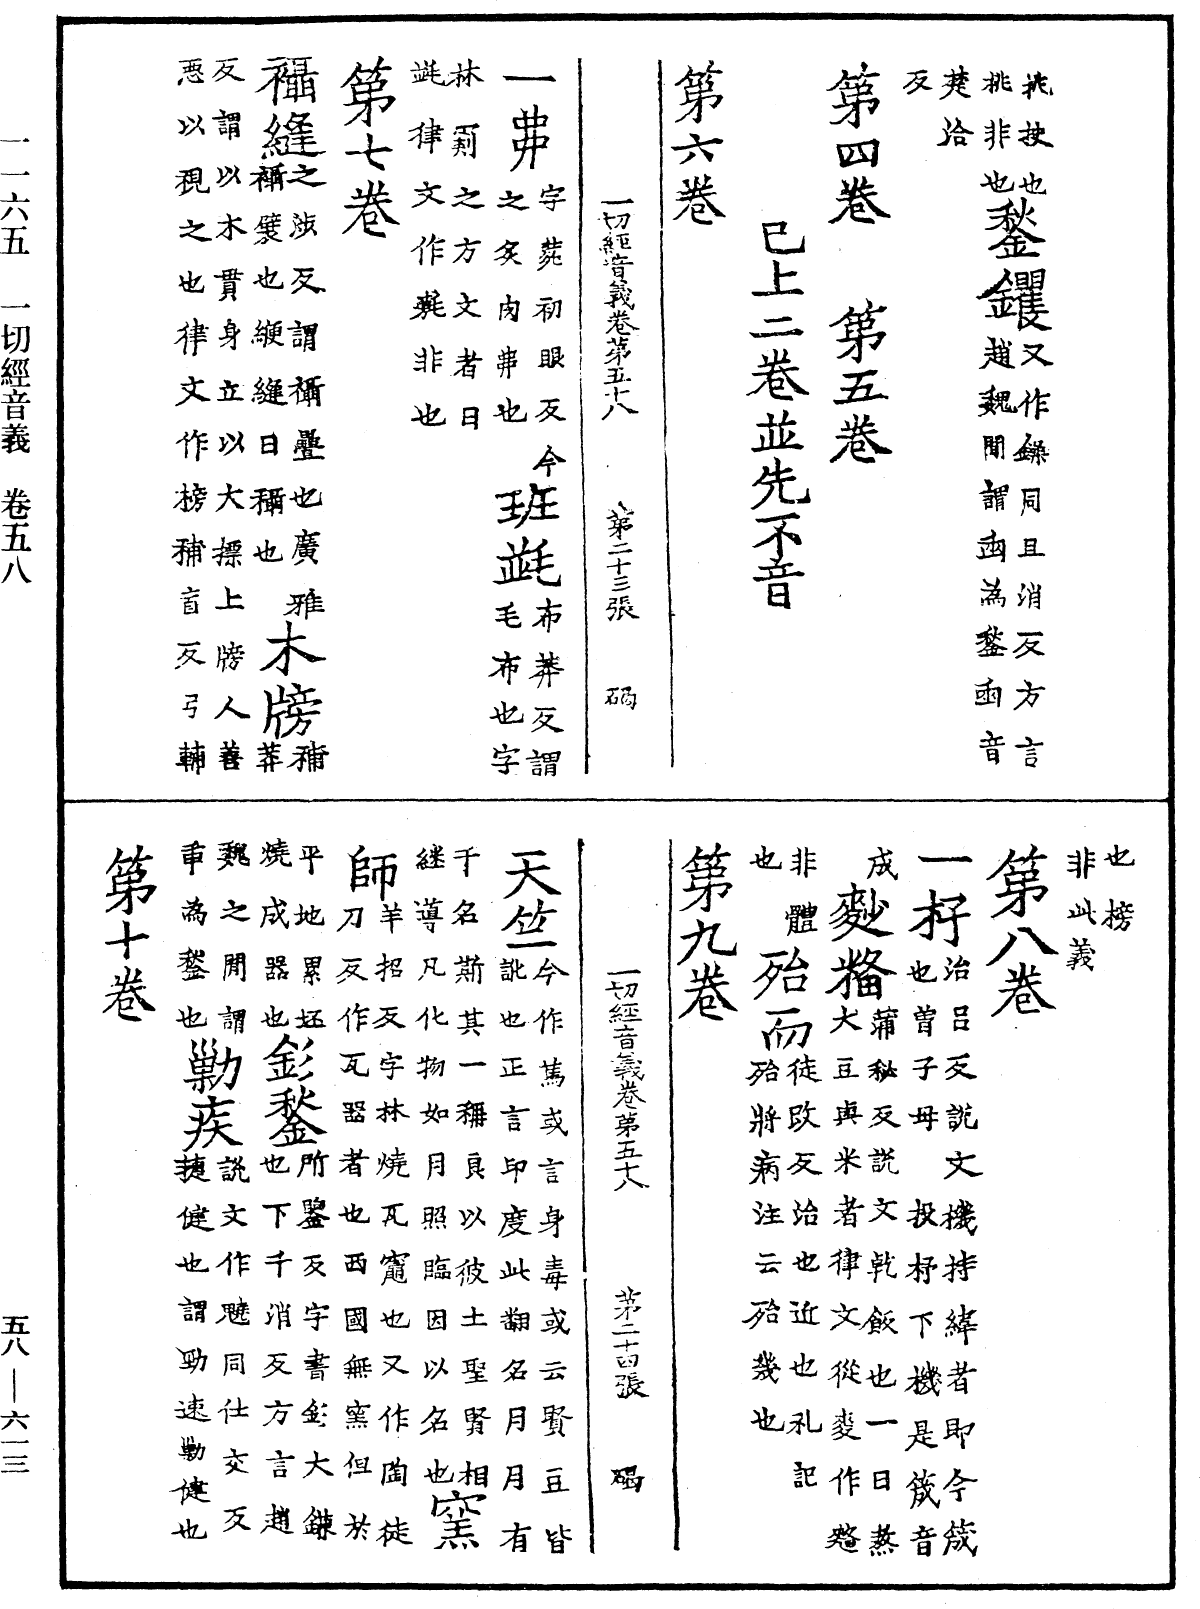 一一六五　一切經音義　卷五八
挑抰也
挑非也
楚洽
反
鍫钁
又作鐰同且消反方言
趙魏閒謂臿為鍫臿音
第四卷　第五卷
已上二卷並先不音
第六卷
一切經音義卷第五十八　第二十三張　碣
一弗
字苑初眼反今
之炙肉弗也
班㲲
布莽反謂
毛布也字
林罽之方文者曰
㲲律文作㲲非也
第七卷
襵縫
之涉反謂襵疊也廣雅
襵襞也緶縫曰襵也
木牓
補莽
反謂以木貫身立以大摽上牓人善
惡以視之也律文作榜補盲反弓輔
也榜
非此義
第八卷
一杼
治呂反說文機持緯者即今筬
也曾子母投杼下機是筬音
成
麨䊩
蒲秘反說文乾飯也一曰蒸
大豆與米者律文從麥作
非體
也
殆而
徒改反治也近也礼記
殆將病注云殆幾也
第九卷
一切經音義卷第五十八　第二十四張　碣
天竺
今作篤或言身毒或云賢豆皆
訛也正言印度此翻名月月有
千名斯其一稱良以彼土聖賢相
継導凡化物如月照臨因以名也
窯師
羊招反字林燒瓦竈也又作陶徒
刀反作瓦器者也西國無窯但於
平地累坯
燒成器也
釤鍫
所鑒反字書釤大鎌
也下千消反方言趙
魏之閒謂
臿為鍫也
勦疾
說文作魑同仕交反
捷健也謂勁速勦健也
第十卷
五八—六一三